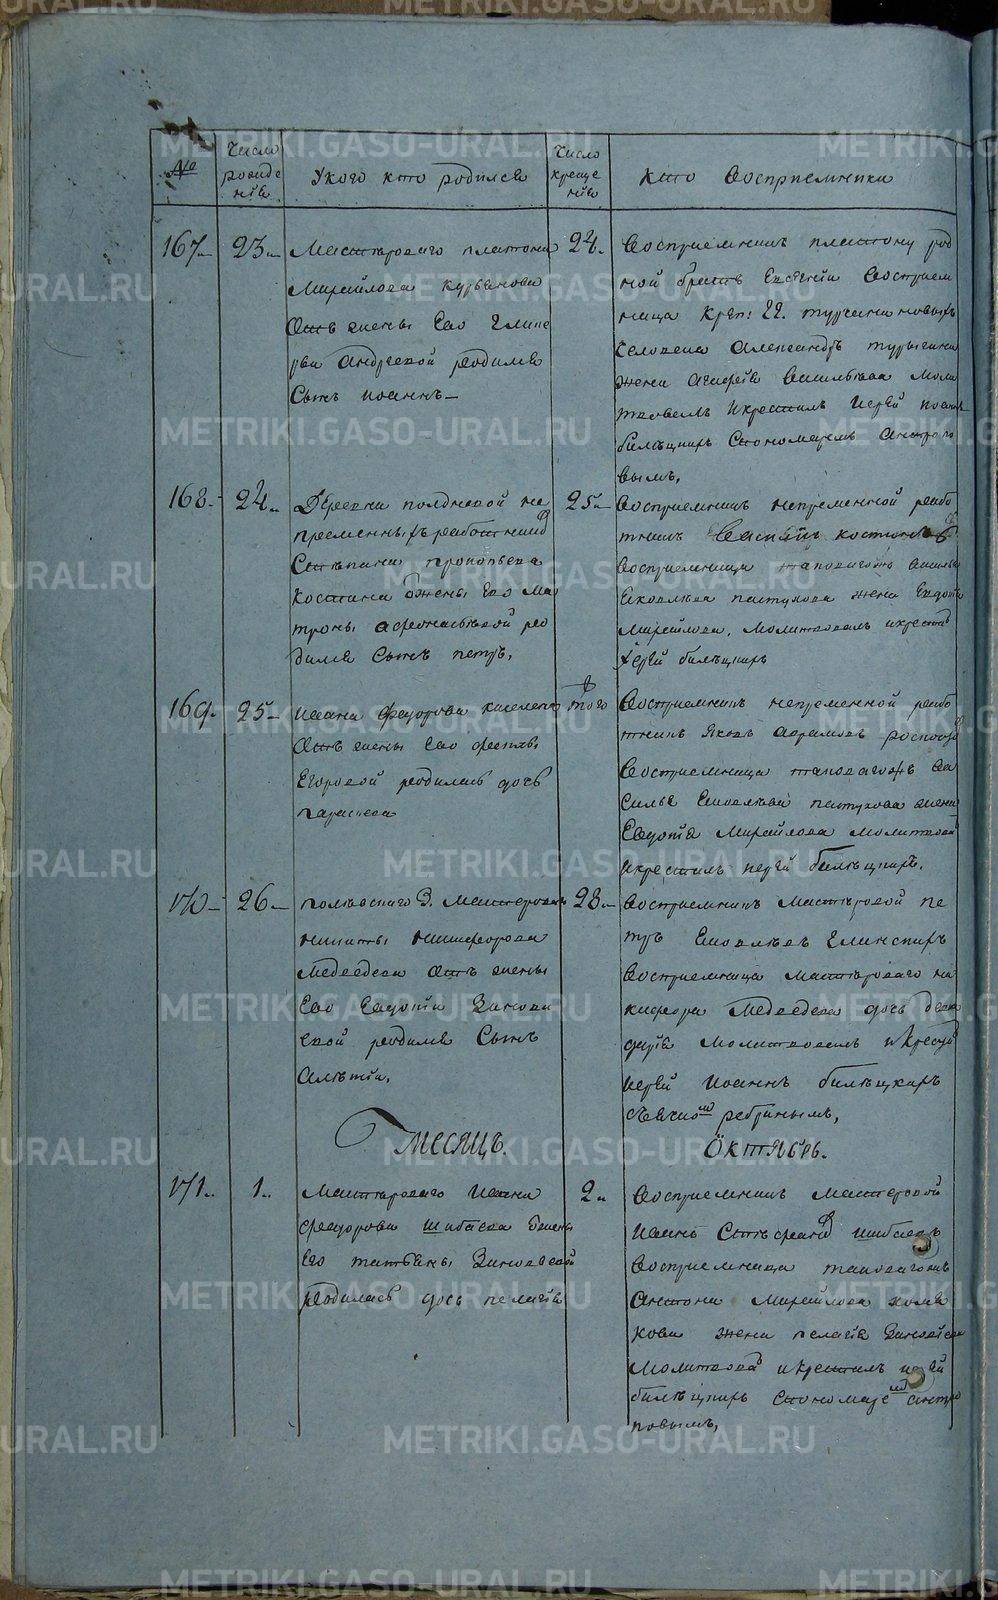 №
Число рожде нія
У кого кто родился
Число креще нія
Кто Восприемники
167
23
Мастероваго платона
Михайлова курбанова
Отъ жены Его Глике
рьи Андреевой родился
Сынъ иоаннъ
24
Восприемникъ платону род
ной братъ Евсегній Восприем
ница креп: гг. турчаниновыхъ
человека Александръ турыгина
жена Агафія Васильева моли
твовалъ и крестилъ иерей иоаннъ
билецкиръ Спономаремъ Антропо
вымъ,
168
24
Деревни полдневой не
пременныхъ работников
Степана прокопьева
костина Ожены Его Ма
троны Афонасьевой ро
дился Сынъ петръ,
25
Восприемникъ непременной рабо
тникъ костинъ
Восприемница таковагожъ василья
Яковлева пастухова жена Евдотья
Михайлова, молитвовалъ и крестил
иерей билецкиръ
169
25
ивана федорова киселева
Отъ жены Его
Егоровой родилась дочь
параскева
того
Восприемникъ непременной рабо
тникъ Яковъ Абрамовъ
Восприемница таковагожъ Ва
силья Яковлева пастухова жена
Евдотія Михайлова молитвовал
и крестилъ иерей билецкиръ,
170
26
полевскаго З. мастероваго
никиты никифорова
Медведева Отъ жены
Его Евдотіи Зинове
евой родился Сынъ
28
Восприемникъ Мастеровой пе
тръ Яковлевъ Глинскиръ
Восприемница мастероваго ни
кифора Медведева дочь
Молитвовалъ и крестил
иерей Иоаннъ билецкиръ
ребринымъ,
Месяцъ.
Октябрь.
171
1
Мастероваго Ивана
федорова шибаева Ожены
Его татьяны Зиновеевой
родилась дочь пелагія
2
Восприемникъ мастеровой
Иванъ шибаевъ
Восприемница таковагожъ
Антона Михайлова хомя
кова жена пелагія Зиновеева
молитвовал и крестилъ иерей
билецкиръ Спономарем антро
повымъ,
METRIKI.GASO-URAL.RU